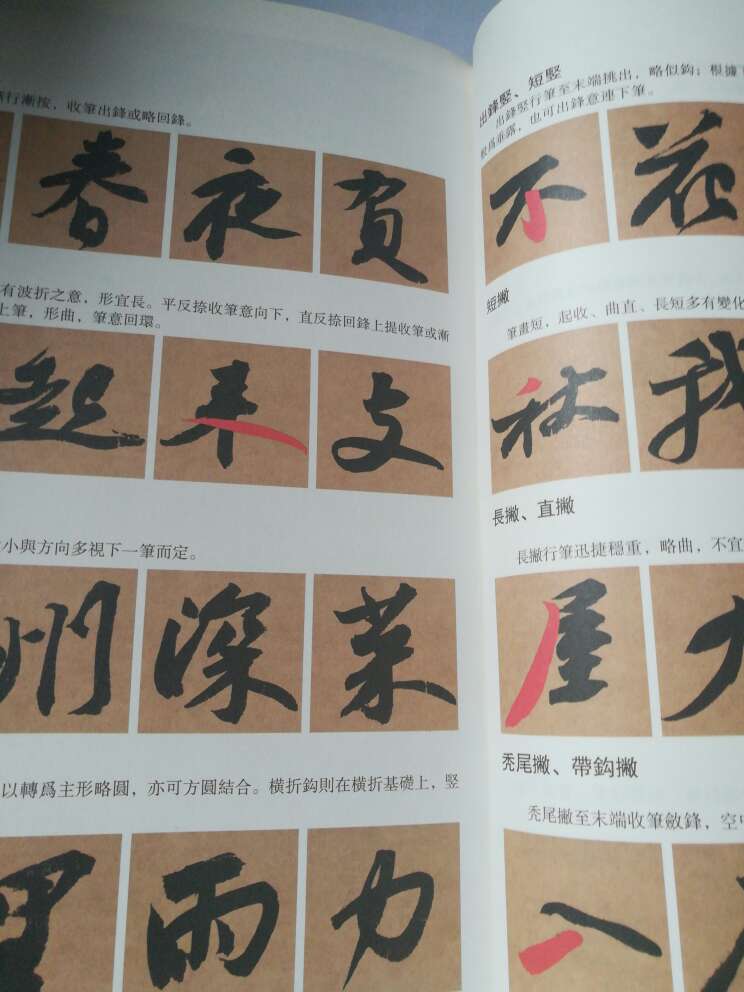 行漸按，收筆出鋒或略回鋒。
春 夜 賀
有波折之意，形宜長。平反捺收筆意向下，直反捺回鋒上提收筆或漸
上筆，形曲，筆意回環。
起 来 支
小與方向多視下一筆而定。
州 深 菜
以轉爲主形略圓，亦可方圓結合。横折鈎則在横折基礎上，竪
里 雨 力
出鋒竪、短竪
出鋒竪行筆至末端挑出，略似鈎；根據
爲垂露，也可出鋒意連下筆。
不 花
短撇
筆畫短，起收、曲直、長短多有變化
我
長撇、直撇
長撇行筆迅捷穩重，略曲，不宜
屋
禿尾撇、帶鈎撇
禿尾撇至末端收筆斂鋒，空
入